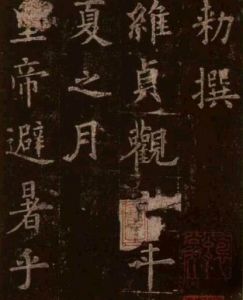 勑撰
維貞觀六年
夏之月
皇帝避暑乎